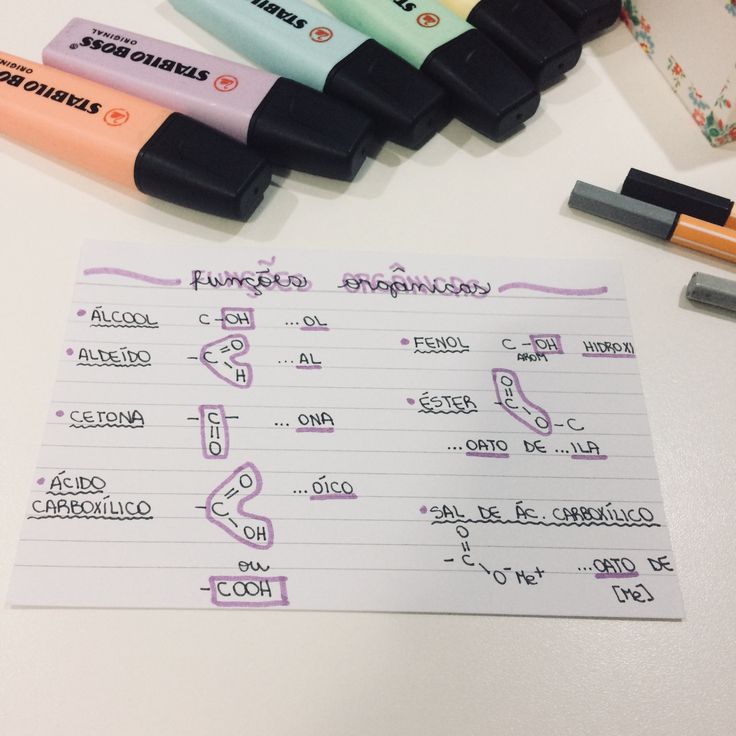 STABILO BOSS
ORIGINAL
STABILO BOSS
ORIGINAL
STABILO BOSS
ORIGINAL
STABILO BOSS
funções orgânicas
• ÁLCOOL C-OH ...OL
• ALDEÍDO -C=O H ...AL
• CETONA -C- O ...ONA
• ÁCIDO
CARBOXÍLICO -C=O OH ...OÍCO
ou
-COOH
• FENOL C-OH HIDROXI
AROM
• ÉSTER -C=O O-C
...OATO DE ...ILA
• SAL DE ÁC. CARBOXÍLICO
-C=O O⁻Me⁺ ...OATO DE
[Me]